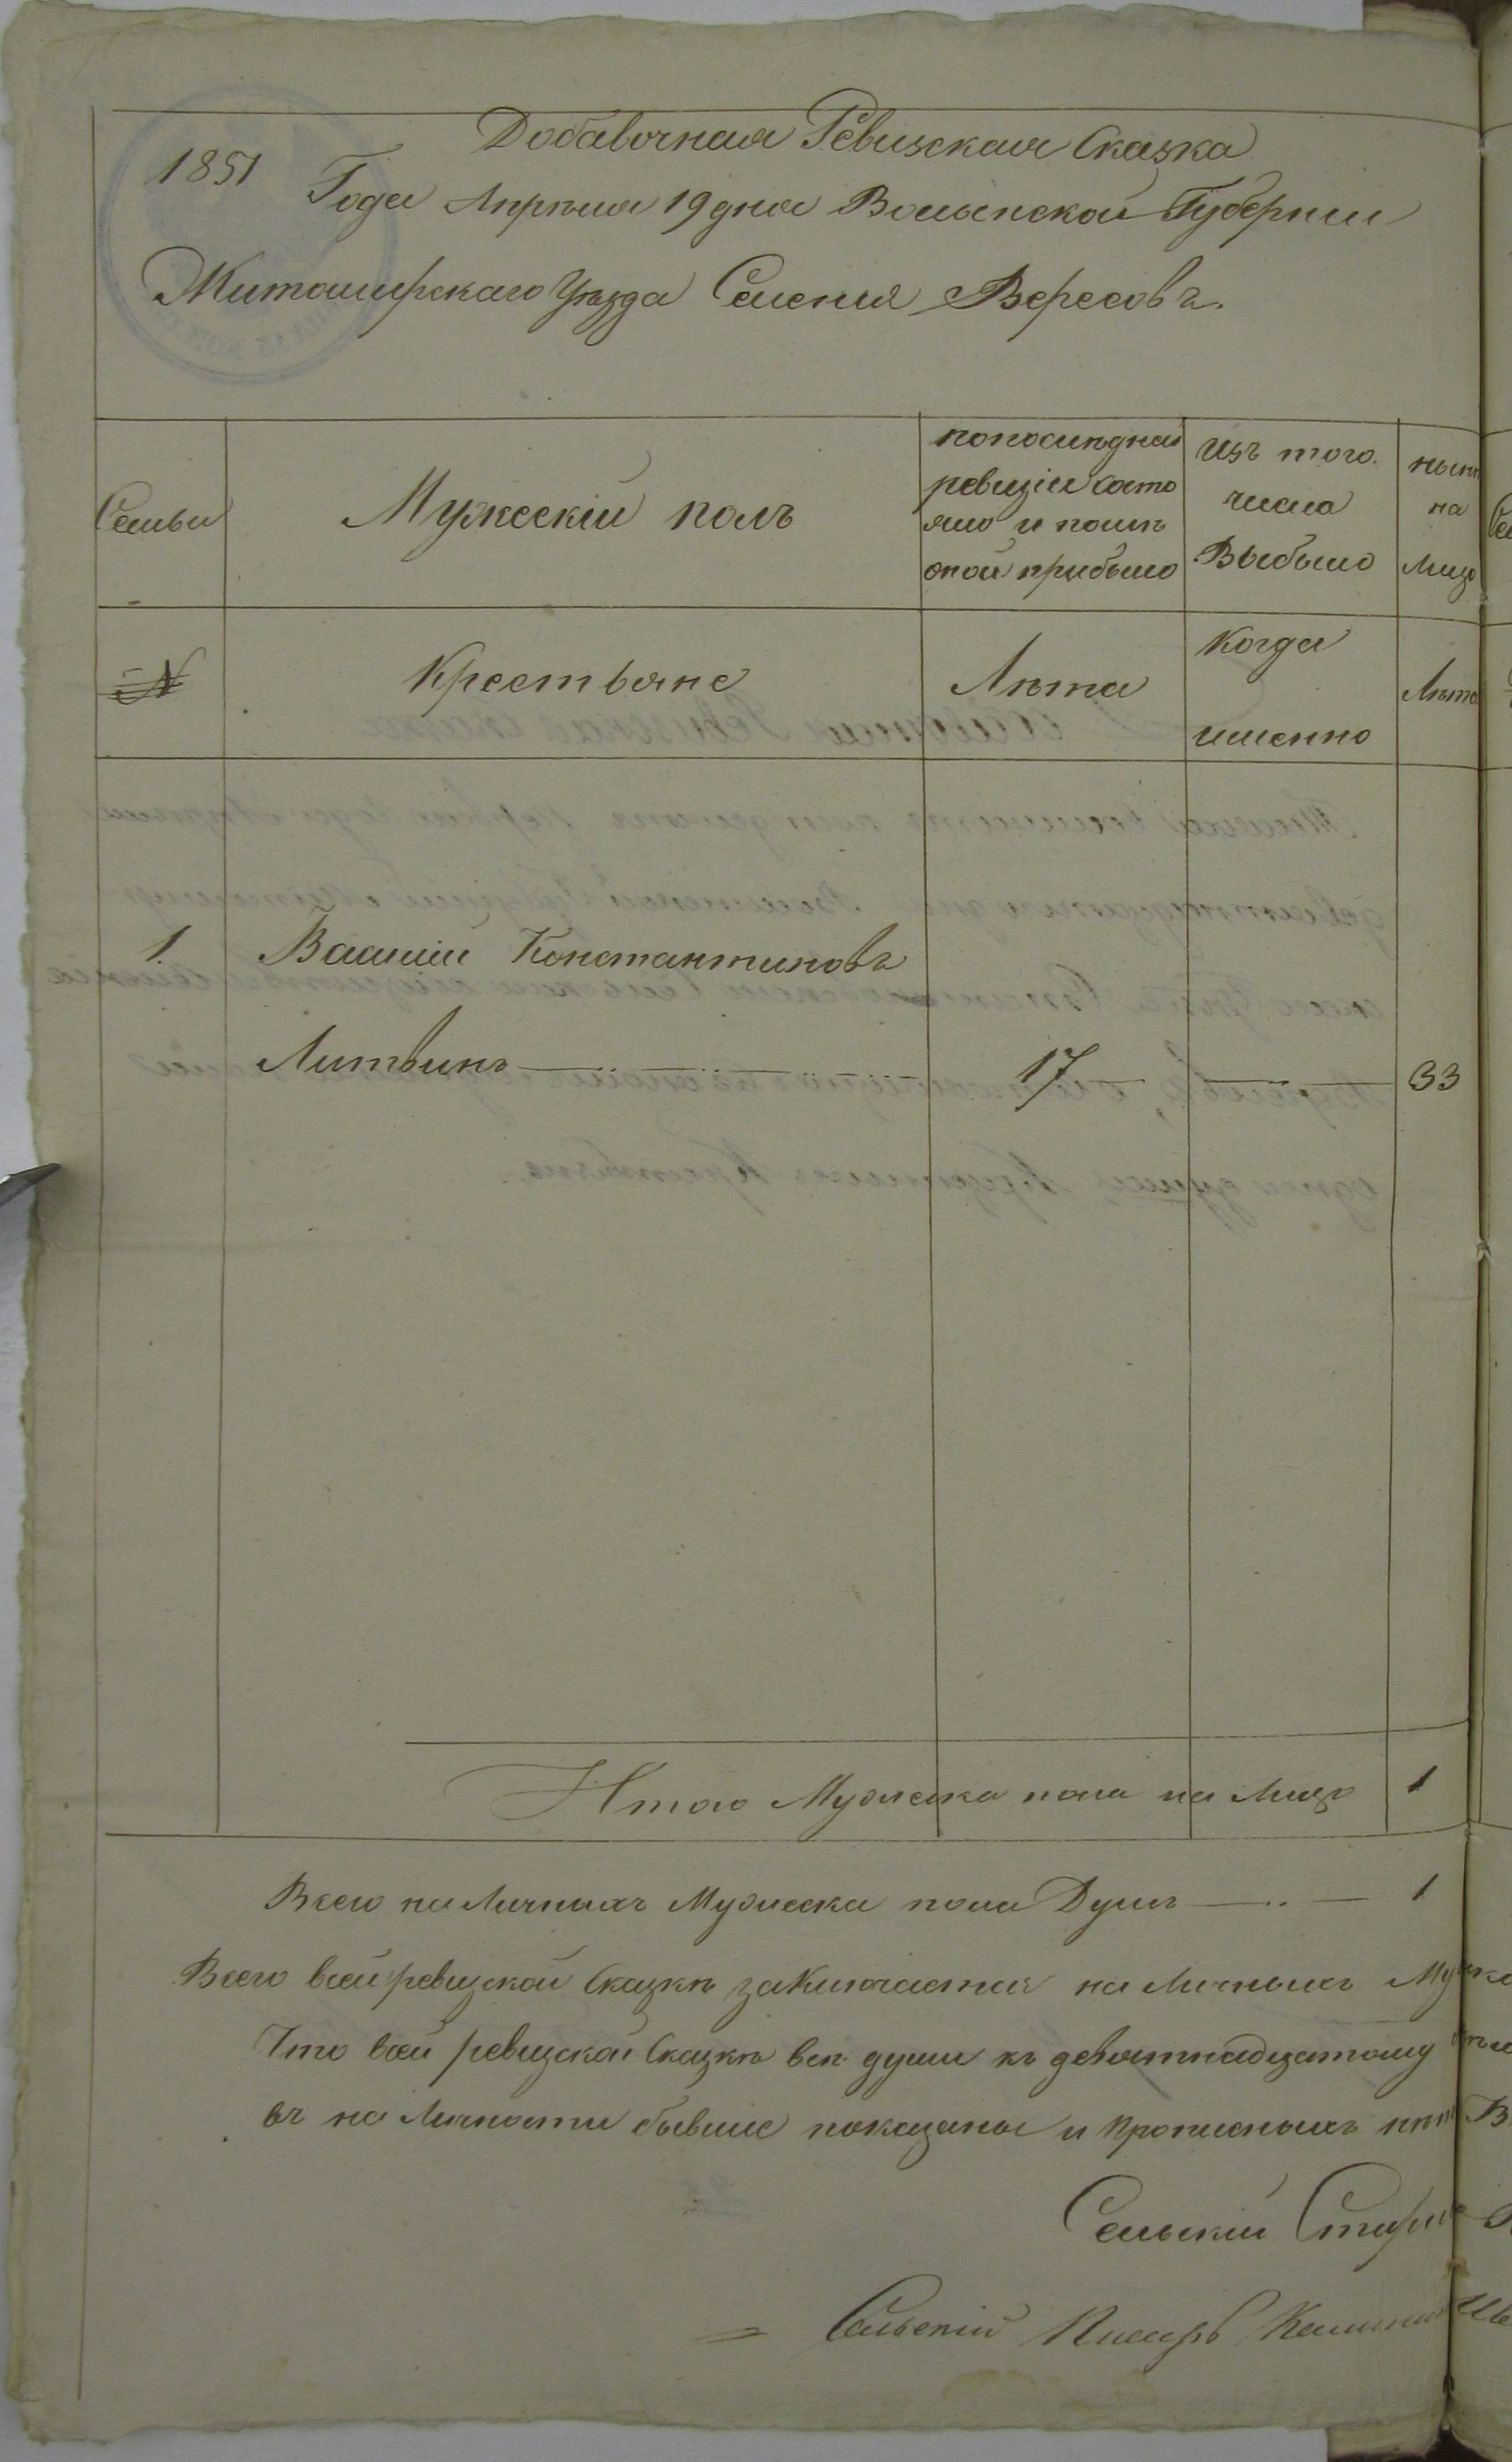 Добавочная Ревизская Сказка
1851 Года Апрѣля 19 дня Волынской Губерніи
Житомирскаго Уѣзда Селенія Вересовъ.
Семьи
Мужескій полъ
по послѣдней
ревизіи состо
яло и послѣ
оной прибыло
Изъ того
числа
Выбыло
нынѣ
на
Лицо
№
Крестьяне
Лѣта
Когда
именно
Лѣта
1. Василій Константиновъ
Литвинъ 17 33
Итого Мужеска пола на Лицо 1
Всего на Личныхъ Мужеска пола Душъ 1
Всего всей ревизской Сказкѣ заключается на Личныхъ
Что всей ревизской Сказкѣ всѣ души къ девятнадцатому
въ на Личности бывшіе показаны и прописныхъ
Сельскій
Сельскій Писарь